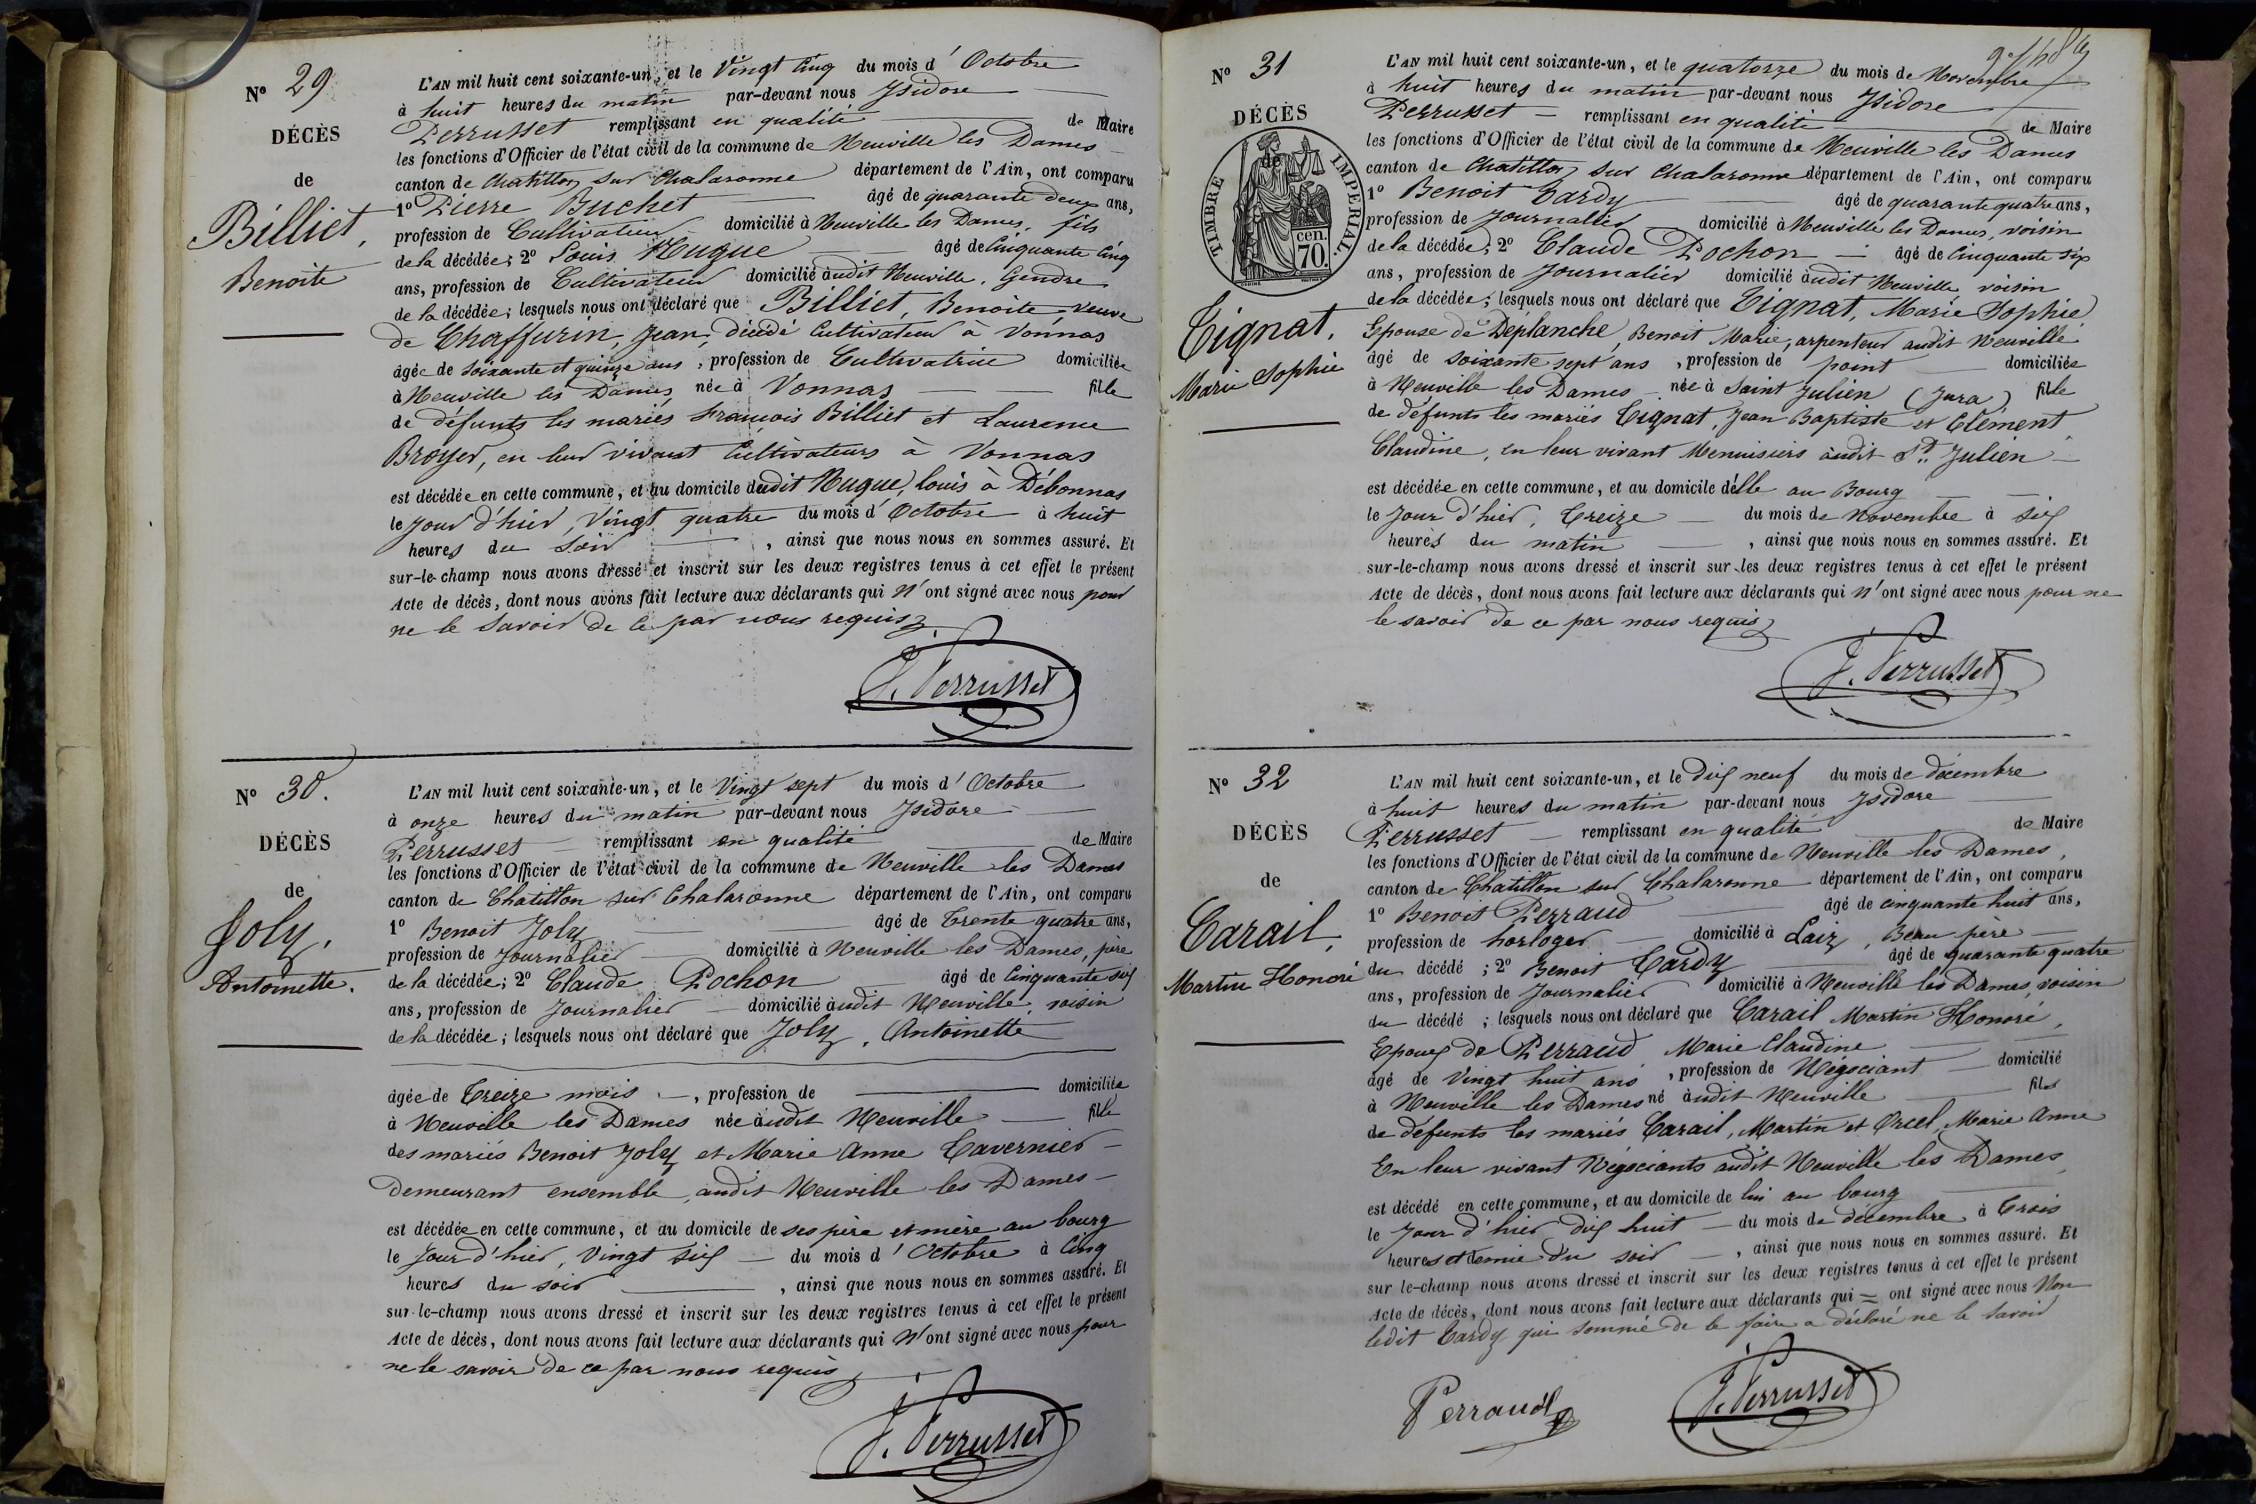 N° 29
DÉCÈS
de
Billiet,
Benoite
L'AN mil huit cent soixante-un, et le Vingt Cinq du mois d'Octobre
à huit heures du matin par-devant nous Isidore
Perrusset remplissant en qualité de Maire
les fonctions d'Officier de l'état civil de la commune de Neuville les Dames
canton de Chatillon sur Chalaronne département de l'Ain, ont comparu
1° Pierre Buchet âgé de quarante deux ans,
profession de Cultivateur domicilié à Neuville les Dames, fils
de la décédée; 2° Louis Hugue âgé de Cinquante Cinq
ans, profession de Cultivateur domicilié audit Neuville, Gendre
de la décédée; lesquels nous ont déclaré que Billiet, Benoite, veuve
de Chaffurin, Jean, décédé Cultivateur à Vonnas
âgée de soixante et quinze ans, profession de Cultivatrice domiciliée
à Neuville les Dames née à Vonnas fille
de défunts les mariés François Billiet et Laurence
Broyer, en leur vivant Cultivateurs à Vonnas
est décédée en cette commune, et au domicile dudit Hugue, louis à Débonnas
le jour d'hier, Vingt quatre du mois d'Octobre à huit
heures du soir, ainsi que nous nous en sommes assuré. Et
sur-le-champ nous avons dressé et inscrit sur les deux registres tenus à cet effet le présent
Acte de décès, dont nous avons fait lecture aux déclarants qui n'ont signé avec nous pour
ne le savoir de ce par nous requis
J. Perrusset
N° 30.
DÉCÈS
de
Joly,
Antoinette.
L'AN mil huit cent soixante-un, et le Vingt sept du mois d'Octobre
à onze heures du matin par-devant nous Isidore
Perrusset remplissant en qualité de Maire
les fonctions d'Officier de l'état civil de la commune de Neuville les Dames
canton de Chatillon sur Chalaronne département de l'Ain, ont comparu
1° Benoit Joly âgé de Trente quatre ans,
profession de Journalier domicilié à Neuville les Dames, père
de la décédée; 2° Claude Pochon âgé de Cinquante six
ans, profession de Journalier domicilié audit Neuville, voisin
de la décédée; lesquels nous ont déclaré que Joly, Antoinette
âgée de Treize mois, profession de domiciliée
à Neuville les Dames née audit Neuville fille
des mariés Benoit Joly et Marie Anne Tavernier
demeurant ensemble, audit Neuville les Dames
est décédée en cette commune, et au domicile de ses père et mère au bourg
le Jour d'hier, Vingt six du mois d'Octobre à Cinq
heures du soir, ainsi que nous nous en sommes assuré. Et
sur-le-champ nous avons dressé et inscrit sur les deux registres tenus à cet effet le présent
Acte de décès, dont nous avons fait lecture aux déclarants qui N'ont signé avec nous pour
ne le savoir de ce par nous requis
J. Perrusset
N° 31
DÉCÈS
de
TIMBRE IMPERIAL.
70 cen.
Tignat,
Marie Sophie
L'AN mil huit cent soixante-un, et le quatorze du mois de Novembre
à huit heures du matin par-devant nous Isidore
Perrusset remplissant en qualité de Maire
les fonctions d'Officier de l'état civil de la commune de Neuville les Dames
canton de Chatillon sur Chalaronne département de l'Ain, ont comparu
1° Benoit Cardy âgé de quarante quatre ans,
profession de Journalier domicilié à Neuville les Dames, voisin
de la décédée; 2° Claude Pochon âgé de Cinquante six
ans, profession de Journalier domicilié audit Neuville voisin
de la décédée; lesquels nous ont déclaré que Tignat, Marie Sophie
Epouse de Deplanche, Benoit Marie, arpenteur audit Neuville
âgé de soixante sept ans, profession de point domiciliée
à Neuville les Dames née à Saint Julien (Jura) fille
de défunts les mariés Tignat, Jean Baptiste et Clément
Claudine, en leur vivant Menuisiers audit St. Julien
est décédée en cette commune, et au domicile d'elle au Bourg
le Jour d'hier, Treize du mois de Novembre à six
heures du matin, ainsi que nous nous en sommes assuré. Et
sur-le-champ nous avons dressé et inscrit sur les deux registres tenus à cet effet le présent
Acte de décès, dont nous avons fait lecture aux déclarants qui n'ont signé avec nous pour ne
le savoir de ce par nous requis
J. Perrusset
N° 32
DÉCÈS
de
Carail,
Martin Honoré
L'AN mil huit cent soixante-un, et le dix neuf du mois de décembre
à huit heures du matin par-devant nous Isidore
Perrusset remplissant en qualité de Maire
les fonctions d'Officier de l'état civil de la commune de Neuville les Dames,
canton de Chatillon sur Chalaronne département de l'Ain, ont comparu
1° Benoit Perraud âgé de cinquante huit ans,
profession de horloger domicilié à Laiz, Beau père
du décédé; 2° Benoit Cardy âgé de quarante quatre
ans, profession de Journalier domicilié à Neuville les Dames, voisin
du décédé; lesquels nous ont déclaré que Carail Martin Honoré,
Epoux de Perraud Marie Claudine
âgé de Vingt huit ans, profession de Négociant domicilié
à Neuville les Dames né audit Neuville fils
de défunts les mariés Carail, Martin et Orcel, Marie Anne
En leur vivant Négociants audit Neuville les Dames
est décédé en cette commune, et au domicile de lui au bourg
le Jour d'hier dix huit du mois de décembre à Trois
heures et demie du soir, ainsi que nous nous en sommes assuré. Et
sur le-champ nous avons dressé et inscrit sur les deux registres tenus à cet effet le présent
Acte de décès, dont nous avons fait lecture aux déclarants qui = ont signé avec nous Non
ledit Cardy qui sommé de le faire a déclaré ne le savoir
Perraud
J. Perrusset